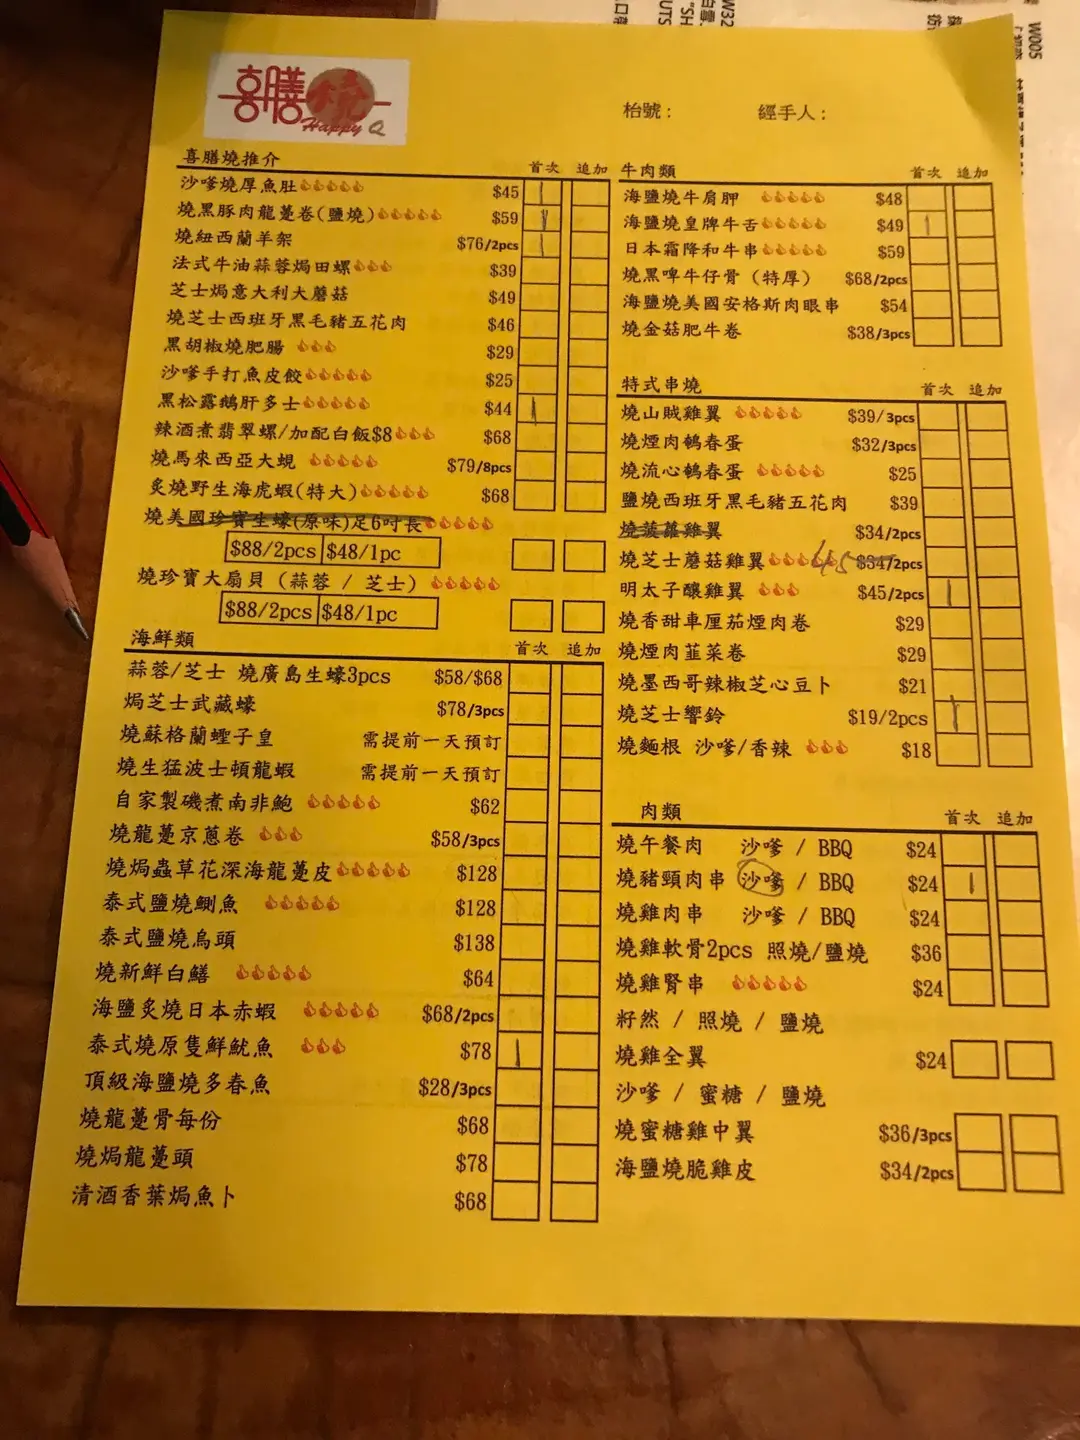 喜膳燒
Happy Q
枱號：
經手人：
喜膳燒推介 首次 追加
沙嗲燒厚魚肚 $45
燒黑豚肉龍躉卷(鹽燒) $59
燒紐西蘭羊架 $76/2pcs
法式牛油蒜蓉焗田螺 $39
芝士焗意大利大蘑菇 $49
燒芝士西班牙黑毛豬五花肉 $46
黑胡椒燒肥腸 $29
沙嗲手打魚皮餃 $25
黑松露鵝肝多士 $44
辣酒煮翡翠螺/加配白飯$8 $68
燒馬來西亞大蜆 $79/8pcs
炙燒野生海虎蝦(特大) $68
燒美國珍寶生蠔(原味)足6吋長
$88/2pcs $48/1pc
燒珍寶大扇貝 (蒜蓉 / 芝士)
$88/2pcs $48/1pc
海鮮類 首次 追加
蒜蓉/芝士 燒廣島生蠔3pcs $58/$68
焗芝士武藏蠔 $78/3pcs
燒蘇格蘭蟶子皇 需提前一天預訂
燒生猛波士頓龍蝦 需提前一天預訂
自家製磯煮南非鮑 $62
燒龍躉京蔥卷 $58/3pcs
燒焗蟲草花深海龍躉皮 $128
泰式鹽燒鰂魚 $128
泰式鹽燒烏頭 $138
燒新鮮白鱔 $64
海鹽炙燒日本赤蝦 $68/2pcs
泰式燒原隻鮮魷魚 $78
頂級海鹽燒多春魚 $28/3pcs
燒龍躉骨每份 $68
燒焗龍躉頭 $78
清酒香葉焗魚卜 $68
牛肉類 首次 追加
海鹽燒牛肩胛 $48
海鹽燒皇牌牛舌 $49
日本霜降和牛串 $59
燒黑啤牛仔骨 (特厚) $68/2pcs
海鹽燒美國安格斯肉眼串 $54
燒金菇肥牛卷 $38/3pcs
特式串燒 首次 追加
燒山賊雞翼 $39/3pcs
燒煙肉鵪春蛋 $32/3pcs
燒流心鵪春蛋 $25
鹽燒西班牙黑毛豬五花肉 $39
燒菠蘿雞翼 $34/2pcs
燒芝士蘑菇雞翼 45 $34/2pcs
明太子釀雞翼 $45/2pcs
燒香甜車厘茄煙肉卷 $29
燒煙肉韮菜卷 $29
燒墨西哥辣椒芝心豆卜 $21
燒芝士響鈴 $19/2pcs
燒麵根 沙嗲/香辣 $18
肉類 首次 追加
燒午餐肉 沙嗲 / BBQ $24
燒豬頸肉串 沙嗲 / BBQ $24
燒雞肉串 沙嗲 / BBQ $24
燒雞軟骨2pcs 照燒/鹽燒 $36
燒雞腎串 $24
籽然 / 照燒 / 鹽燒
燒雞全翼 $24
沙嗲 / 蜜糖 / 鹽燒
燒蜜糖雞中翼 $36/3pcs
海鹽燒脆雞皮 $34/2pcs
W005